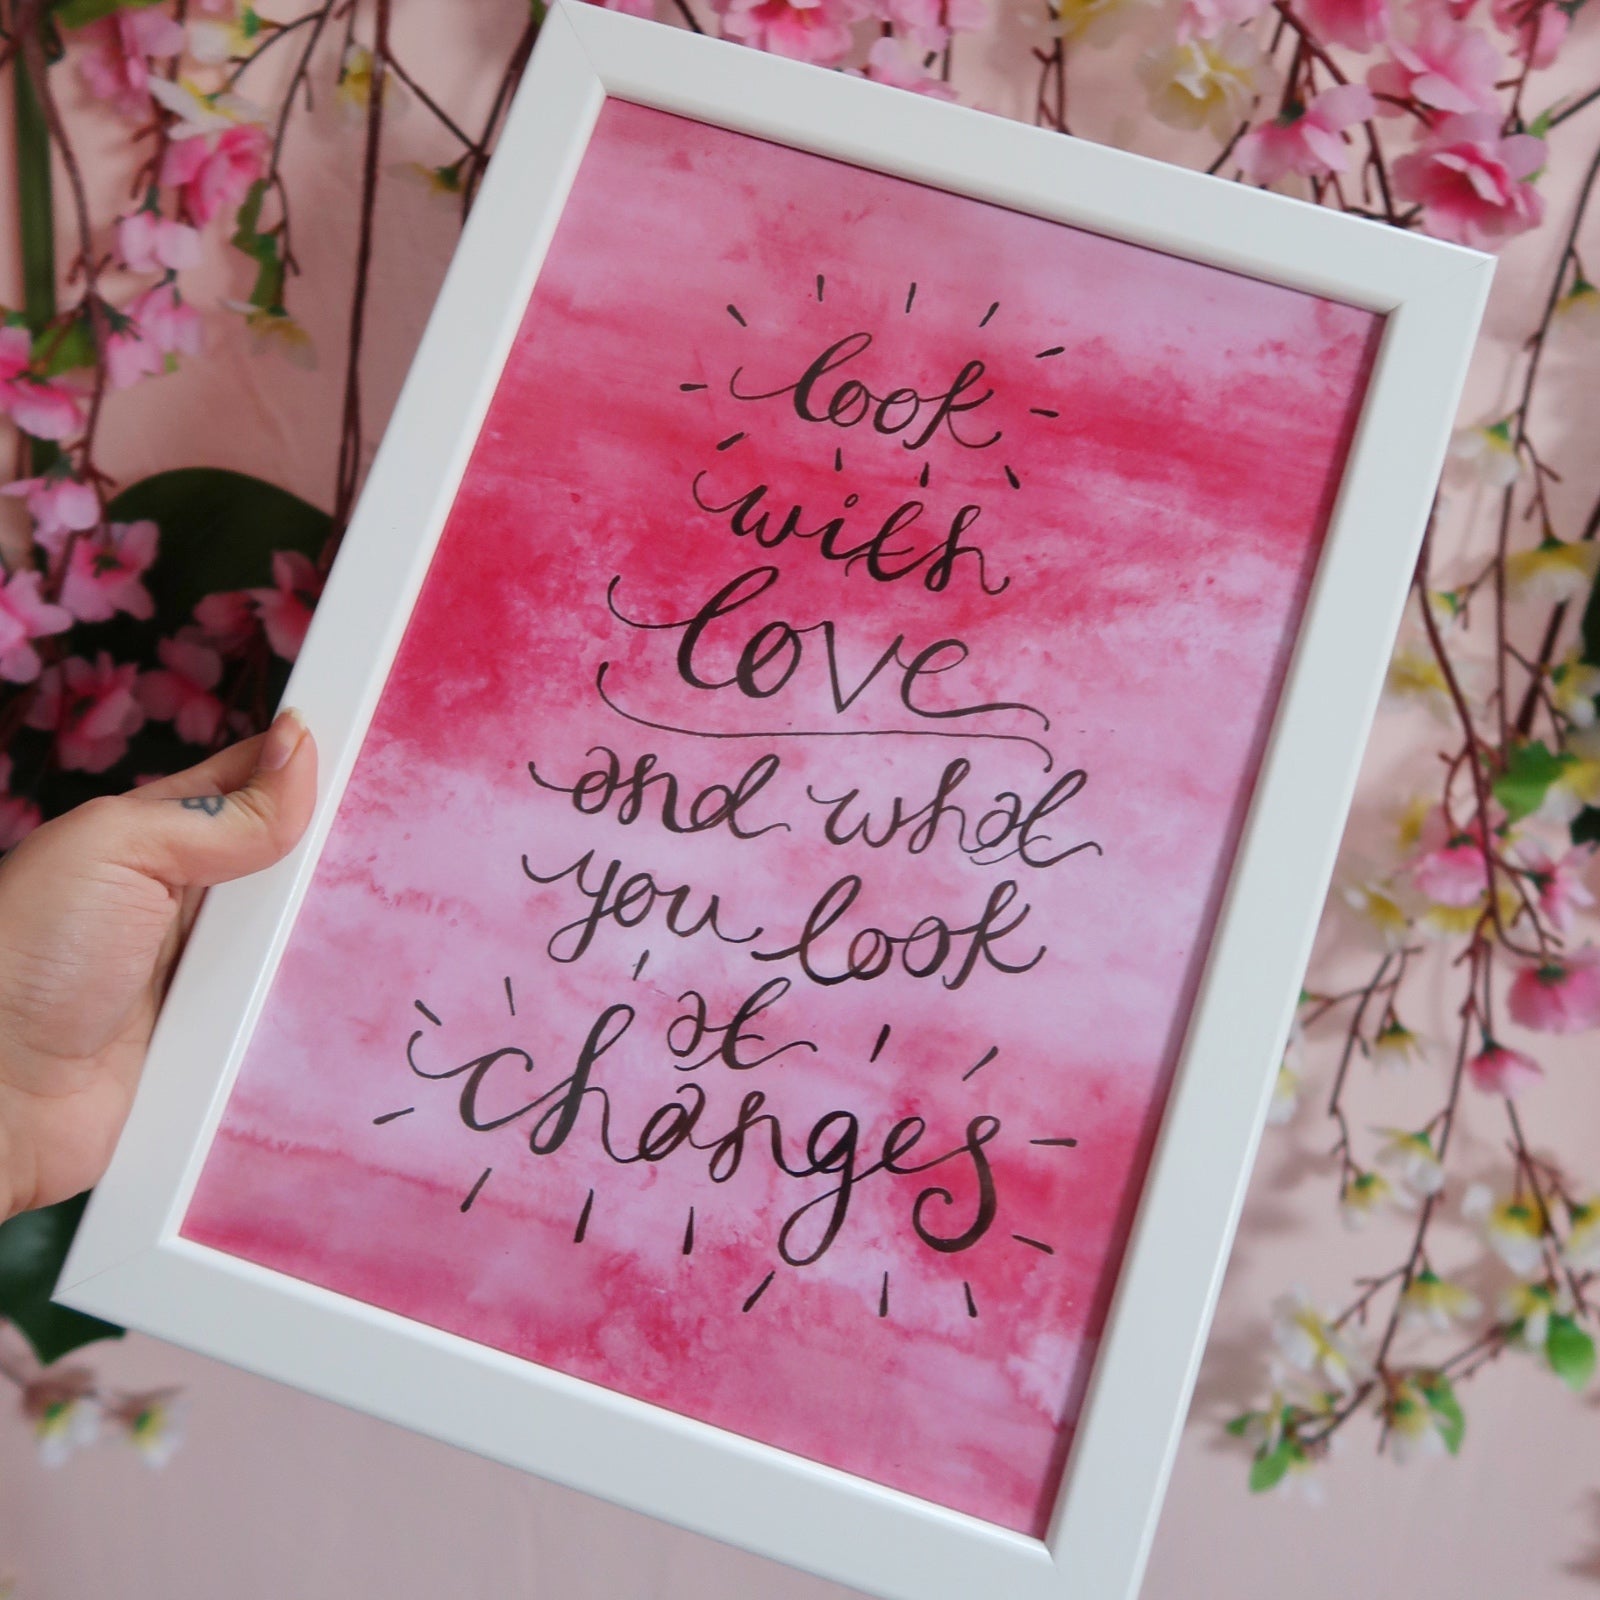 look
with
love
and what
you look
at
changes